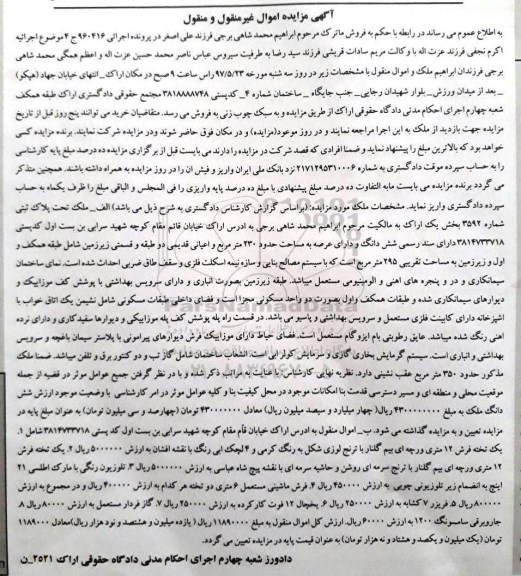 آگهی مزایده اموال غیرمنقول و منقول
به اطلاع عموم می رساند در رابطه با حکم به فروش ماترک مرحوم ابراهیم محمد شاهی برجی فرزند علی اصغر در پرونده اجرائی ۹۶۰۴۱۶ ج ۴ موضوع اجرائیه
اکرم نجفی فرزند عزت اله با وکالت مریم سادات قریشی فرزند سید رضا به طرفیت سیروس عباس ناصر محمد حسین عزت اله و اعظم همگی محمد شاهی
برجی فرزندان ابراهیم ملک و اموال منقول با مشخصات زیر در روز سه شنبه مورخه ۹۷/۵/۲۳ راس ساعت ۹ صبح در مکان اراک_ انتهای خیابان جهاد (هپکو)
_ بعد از میدان ورزش_ بلوار شهیدان رجایی_ جنب جایگاه _ ساختمان شماره ۴_ کدپستی ۳۸۱۸۸۸۸۷۴۸ مجتمع حقوقی دادگستری اراک طبقه همکف
شعبه چهارم اجرای احکام مدنی دادگاه حقوقی اراک از طریق مزایده و به سبک چوب زنی به فروش می رسد. متقاضیان خرید می توانند پنج روز قبل از تاریخ
مزایده جهت بازدید از ملک به این اجرا مراجعه نمایند و در روز موعود(مزایده) و در مکان فوق حاضر شوند ودر مزایده شرکت نمایند. برنده مزایده کسی
خواهد بود که بالاترین مبلغ را پیشنهاد نماید و ضمنا افرادی که قصد شرکت در مزایده را دارند می بایست قبل از برگزاری مزایده ده درصد مبلغ پایه کارشناسی
را به حساب سپرده موقت دادگستری به شماره ۲۱۷۱۲۹۵۳۱۰۰۰۶ نزد بانک ملی ایران واریز و فیش ان را در روز مزایده به همراه داشته باشند. همچنین متذکر
می گردد برنده مزایده می بایست مابه التفاوت ده درصد مبلغ پیشنهادی با مبلغ ده درصد پایه واریزی را فی المجلس و الباقی مبلغ را ظرف یکماه به حساب
سپرده دادگستری واریز نماید. مشخصات ملک مورد مزایده: (براساس گزارش کارشناس دادگستری به شرح ذیل می باشد) الف_ ملک تحت پلاک ثبتی
شماره ۳۵۹۲ بخش یک اراک به مالکیت مرحوم ابراهیم محمد شاهی برجی به ادرس اراک خیابان قائم مقام کوچه شهید سرابی بن بست اول کدپستی
۳۸۱۴۷۳۳۷۱۸ دارای سند رسمی شش دانگ و دارای عرصه به مساحت حدود ۲۳۰ متر مربع و اعیانی قدیمی دو طبقه و قسمتی زیرزمین شامل طبقه همکف و
اول و زیرزمین به مساحت تقریبی ۲۹۵ متر مربع است که با سیستم مصالح بنایی و سازه نیمه اسکلت فلزی و سقف طاق ضربی احداث شده است. نمای ساختمان
سیمانکاری و در و پنجره های اهنی و الومینیومی مستعمل میباشد. طبقه زیرزمین بصورت انباری و دارای سرویس بهداشتی با پوشش کف موزاییک و
دیوارهای سیمانکاری شده و طبقات همکف واول بصورت دو واحد مسکونی مجزا است و فضای داخلی طبقات مسکونی شامل نشیمن یک اتاق خواب با
اشپزخانه دارای کابینت فلزی مستعمل و سرویس بهداشتی و پاسیو می باشد. در قسمت راه پله پوشش کف پله موزاییکی و دیوارها سفید کاری و دارای نرده
اهنی رنگ شده میباشد. عایق رطوبتی بام ایزوگام مستعمل است. فضای حیاط دارای موزاییک فرش دیوارهای پیرامونی با پلاستر سیمان باغچه و سرویس
بهداشتی و انباری است. سیستم گرمایش بخاری گازی و سرمایش کولر ابی است. انشعاب ساختمان شامل گاز اب و دو کنتور برق و تلفن میباشد. ضمنا ملک
مذکور حدود ۳۵۰ متر مربع عقب نشینی دارد. نظریه نهایی کارشناس: با عنایت به مراتب ذکر شده و با در نظر گرفتن جمیع عوامل موثر در قضیه از جمله
موقعیت محلی و منطقه ای و مسیر دسترسی قدمت بنا امکانات موجود در محل کیفیت بنا و کلیه عوامل موثر در امر کارشناسی با وضعیت موجود ارزش شش
دانگ ملک به مبلغ ۴۳۰۰۰۰۰۰۰۰ ریال( چهار میلیارد و سیصد میلیون ریال) معادل ۴۳۰۰۰۰۰۰۰ تومان (چهارصد و سی میلیون تومان) به عنوان مبلغ پایه در
مزایده تعیین و به مزایده گذاشته می شود. ب_ اموال منقول به ادرس اراک خیابان قأم مقام کوچه شهید سرابی بن بست اول کد پستی ۳۸۱۴۷۳۳۷۱۸ شامل ۱.
یک تخته فرش ۱۲ متری ورچه ای بیم گلنار با ترنج لوزی شکل به رنگ کرمی و ۴ لچک ابی رنگ با نقشه افشان به ارزش ۵۰۰۰۰۰۰ ریال ۲. یک تخته فرش
۱۲ متری ورچه ای بیم گلنار با ترنج سرمه ای روشن و حاشیه سرمه ای با نقشه پیچ شاه عباسی به ارزش ۵۰۰۰۰۰۰ ریال ۳. تلویزیون رنگی با مارک اطلسی ۲۱
اینچ به انضمام زیر تلویزیونی چوبی به ارزش ۴۵۰۰۰۰ ریال ۴. فرش ماشینی مستعمل ۶ متری دو تخته هر کدام به ارزش ۴۰۰۰۰۰ ریال و در مجموع به ارزش
۸۰۰۰۰۰ ریال ۵. فریزر ۷ کشابه به ارزش ۲۵۰۰۰۰ ریال ۶. یخچال ۱۲ فوت کار کرده به ارزش ۲۵۰۰۰۰ ریال ۷. گاز فردار مستعمل به ارزش ۸۰۰۰۰ ریال ۸
جاروبرقی سامسونگ ۱۲۰۰ به ارزش ۶۰۰۰۰ ریال. ارزش کل اموال منقول به مبلغ ۱۱۸۹۰۰۰۰ ریال ( یازده میلیون و هشتصد و نود هزار ریال)معادل ۱۱۸۹۰۰۰
تومان (یک میلیون و یکصد و هشتاد و نه هزار تومان) به عنوان قیمت پایه در مزایده تعیین می گردد.
دادورز شعبه چهارم اجرای احکام مدنی دادگاه حقوقی اراک ۲۵۲۱_ ن
ParsNamadData